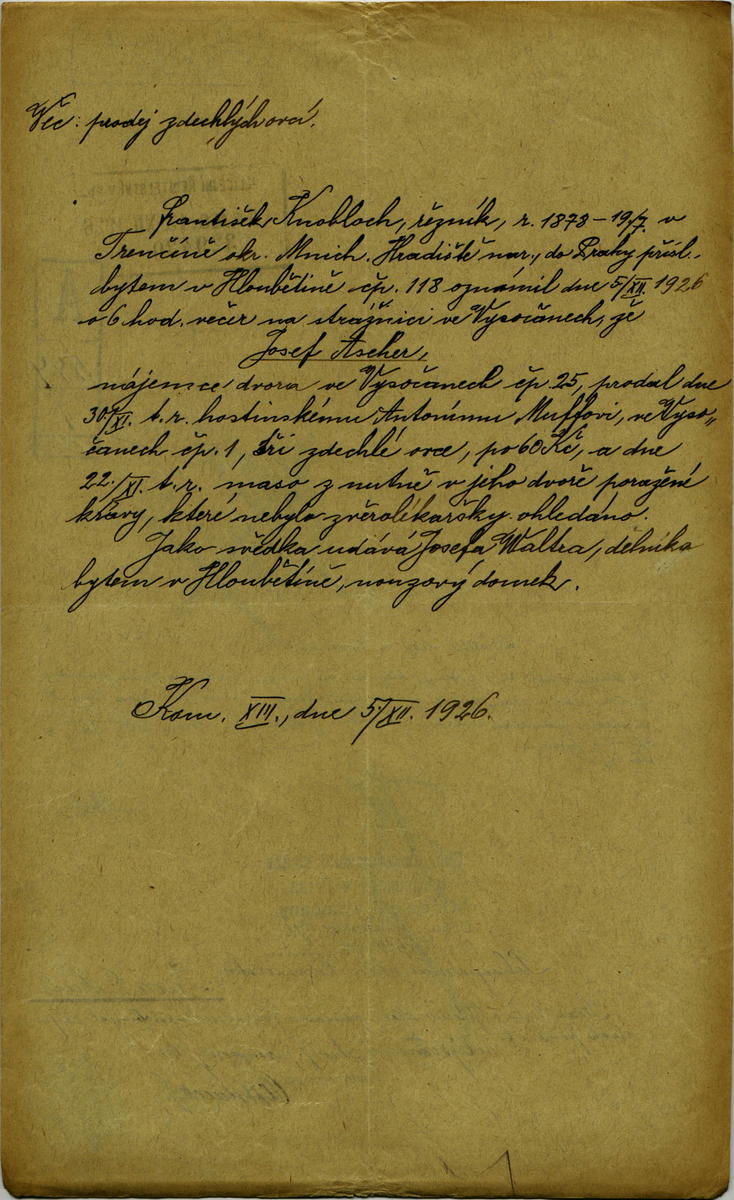 Věc: prodej zdechlých ovcí.
František Knobloch, řezník, r. 1878-19/7. v
Trenčíně okr. Mnich. Hradiště nar., do Prahy přísl.
bytem v Hloubětíně čp. 118 oznámil dne 5/XII. 1926
o 6 hod. večer na strážnici ve Vysočanech, že
Josef Ascher,
nájemce dvora ve Vysočanech čp. 25, prodal dne
30./XI. t. r. hostinskému Antonínu Muffovi, ve Vyso„
čanech čp. 1, tři zdechlé ovce, po 60 Kč, a dne
22./XI. t. r. maso z nutně v jeho dvoře poražené
krávy, které nebylo zvěrolékařsky ohledáno.
Jako svědka udává Josefa Waltra, dělníka
bytem v Hloubětíně, nouzový domek.
Kom. XIII., dne 5/XII. 1926.